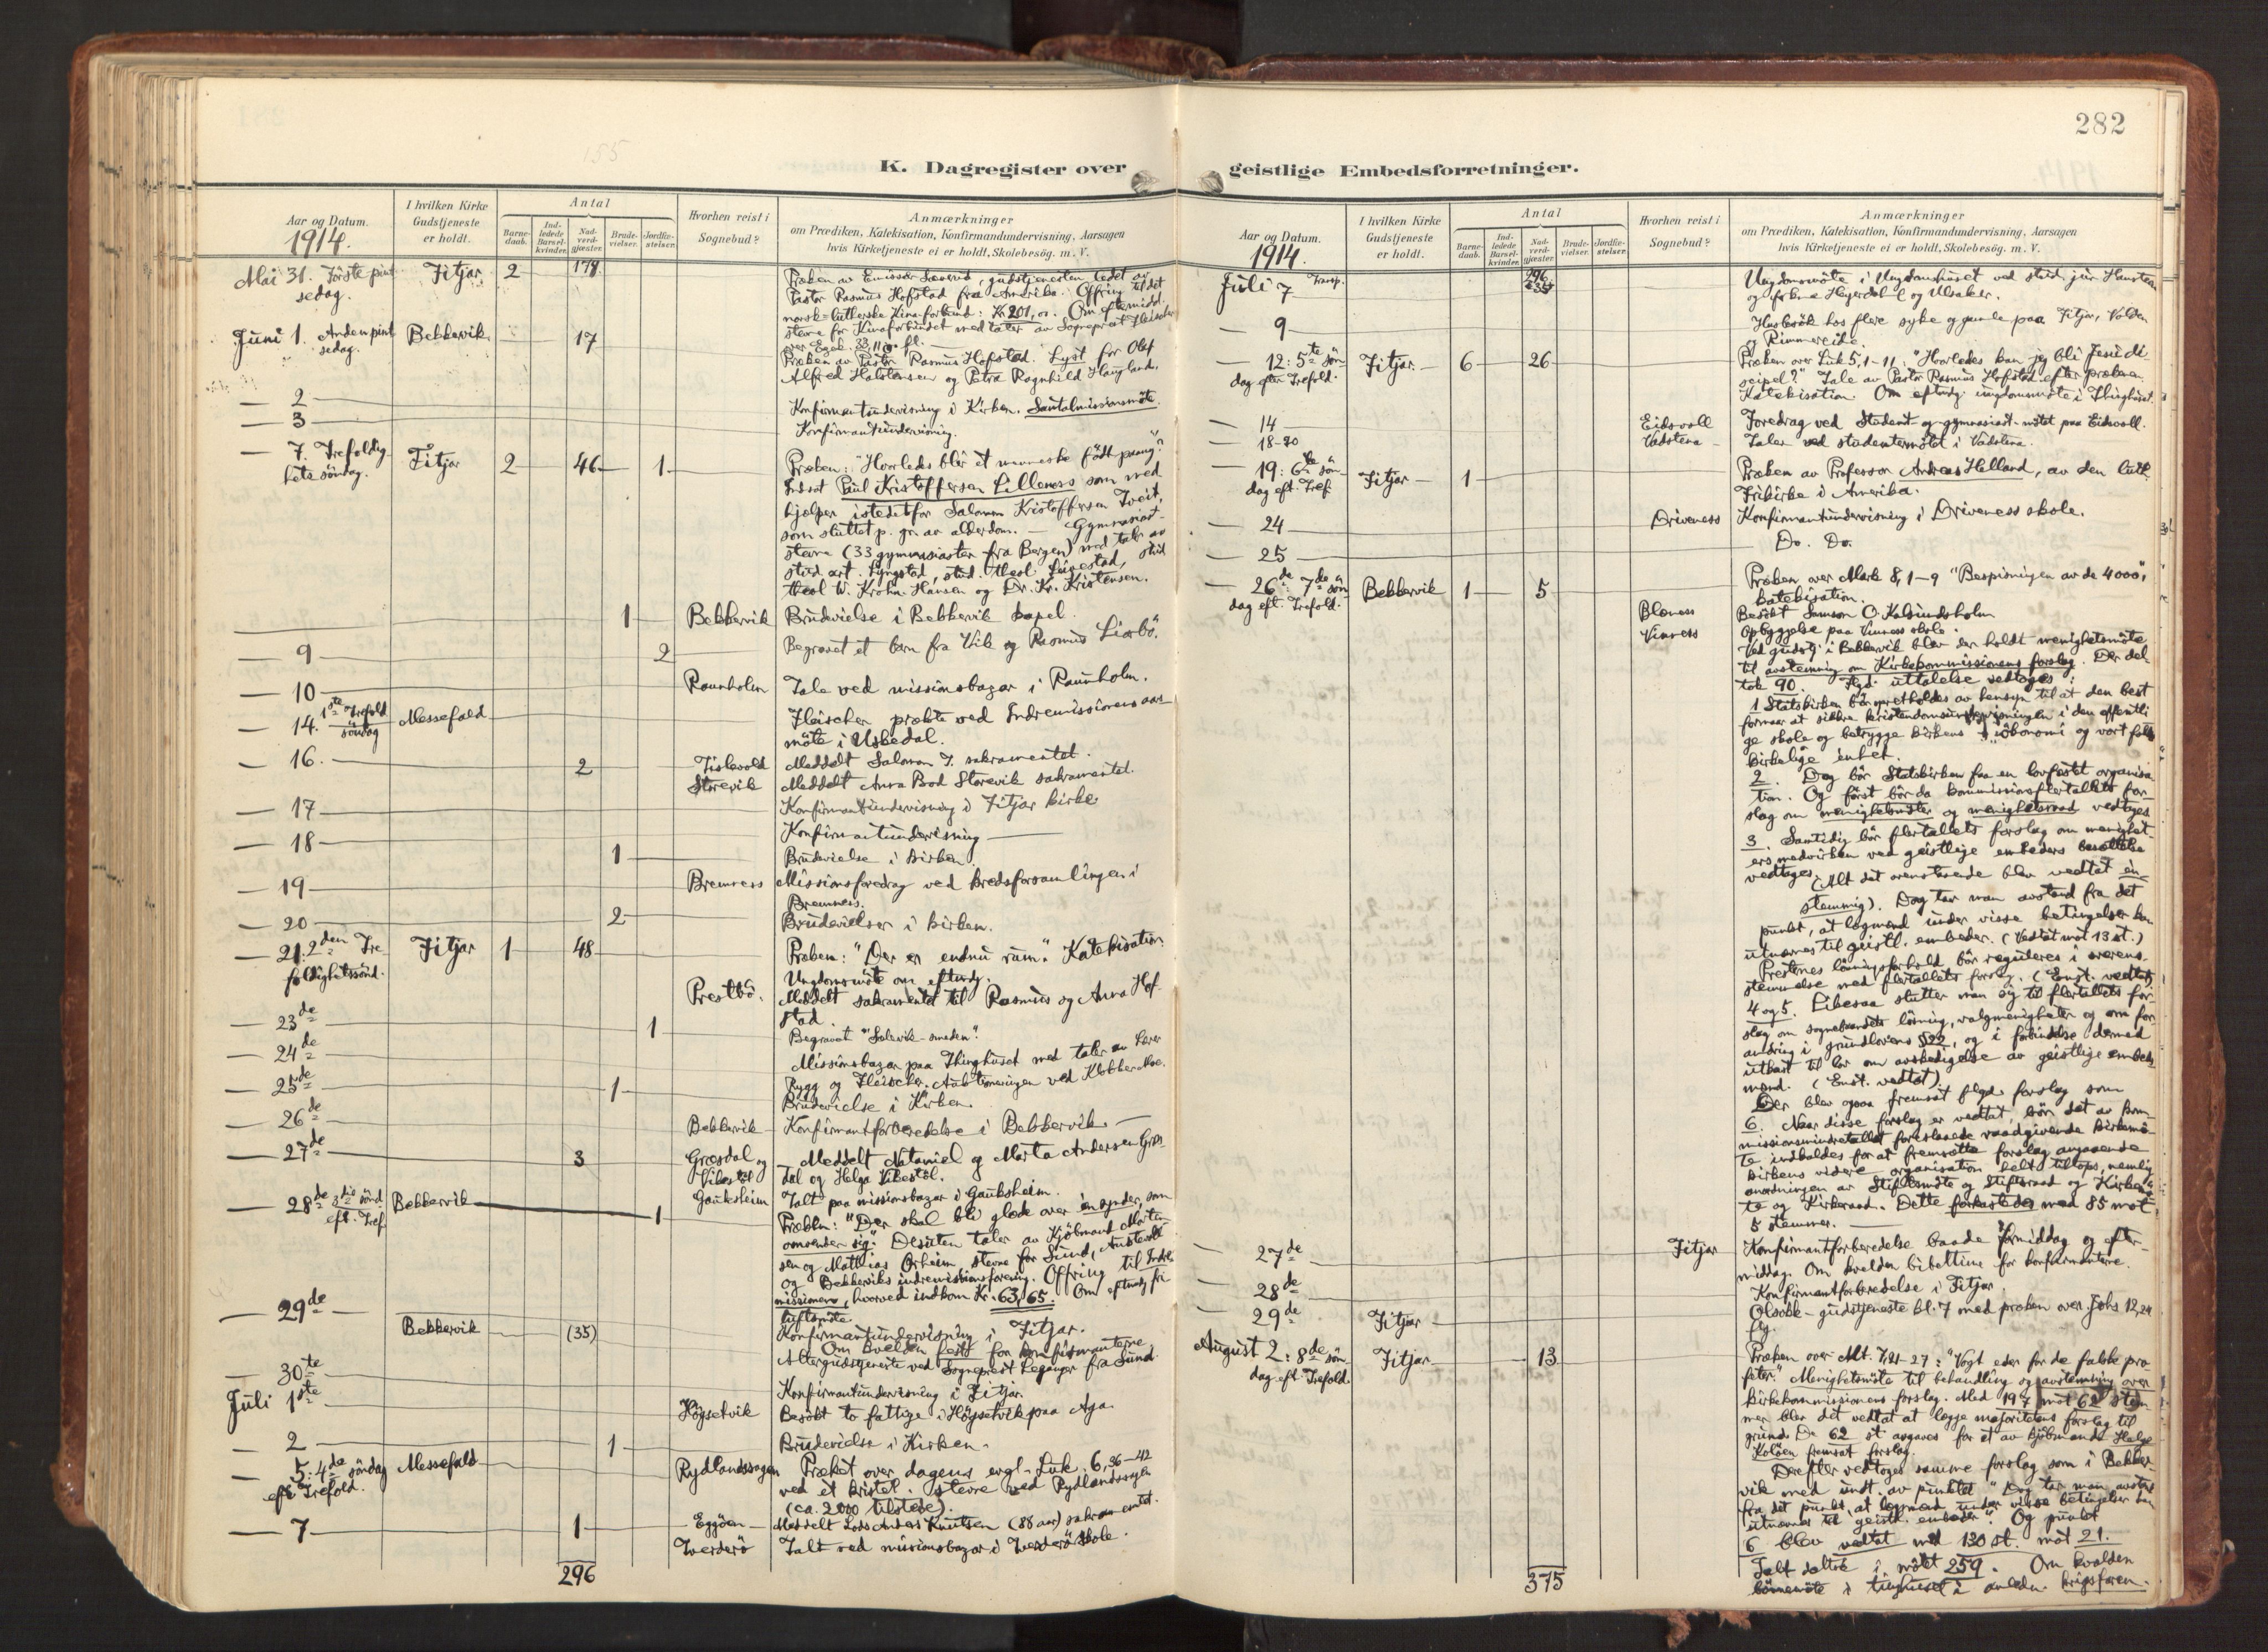 282
K. Dagregister over geistlige Embedsforretninger.
Aar og Datum.
1914.
I hvilken Kirke
Gudstjeneste
er holdt.
Antal
Barne-
daab.
Ind-
ledede
Barsel-
kvinder.
Nad-
verd-
gjæster.
Brude-
vielser.
Jordfæ-
stelser.
Hvorhen reist i
Sognebud?
Anmærkninger
om Prædiken, Katekisation, Konfirmandundervisning, Aarsagen
hvis Kirketjeneste ei er holdt, Skolebesøg. m. V.
Mai 31. Første pint
sedag.
Fitjar
2
178
Præken av Emissær, gudstjenesten ledet av
Pastor Rasmus Hofstad fra Amerika. Offring til det
norsk-lutherske Kina-forbund: Kr. 201,00. Om eftermidd.
stevne for Kinaforbundet med taler av Sogneprest Fleischer
over Ezek. 33,11 o. fl.
Juni 1. Anden pint
sedag.
Bekkervik
17
Præken av Pastor Rasmus Hofstad. Lyst for Olof
Alfred Halstensen og Petra Ragnhild Haugland.
2
Konfirmantundervisning i Kirken. Santalmissionsmøte.
3
Konfirmantundervisning.
7. Trefoldig-
hets søndag.
Fitjar
2
46
1
Præken: "Hvorledes blir et menneske født paany?"
Indsat Paul Kristoffersen Lilleness som med
hjælper istedetfor Salamon Kristoffersen Tveit,
som sluttet p. gr. av alderdom. — Gymnasiast-
stevne (33 gymnasiaster fra Bergen) med taler av
stud. art. Lyngstad, stud. theol. , stud.
theol. W. Krohn-Hansen og Dr. Kr. Kristensen.
1
Bekkervik
Brudevielse i Bekkervik kapel.
9
2
Begravet et barn fra Vik og Rasmus Liarbø.
10
Raunholm
Tale ved missionsbazar i Raunholm.
14. 1ste Trefold
søndag
Messefald
Fleischer prækte ved Indremissionens aars-
møte i Uskedal.
16.
2
Tislevold
Meddelt Salamon T. sakramentet.
Storevik
Meddelt Anna Bod Storevik sakramentet.
17
Konfirmantundervisning i Fitjar kirke
18
Konfirmantundervisning
1
Brudevielse i kirken.
19
Bremness
Missionsforedrag ved kredsforsamlingen i
Bremness.
20
2
Brudevielser i kirken.
21. 2den Tre-
foldighetssønd.
Fitjar
1
48
Præken: "Der er endnu rum". Katekisation.
Ungdomsmøte om eftmdg.
Prestbø.
Meddelt sakramentet til Rasmus og Anna Hof-
stad.
23de
1
Begravet "Salevik-smeden".
24de
Missionsbazar paa Thinghuset med taler av Lærer
Rygg og Fleischer. Auktioneringen ved Klokker Moe.
25de
1
Brudevielse i Kirken.
26de
Bekkervik
Konfirmantforberedelse i Bekkervik.
27de
3
Græsdal og
Vikastøl
Meddelt Nataniel og Marta Andersen Græs-
dal og Helga Vikastøl.
Gauksheim
Talt paa missionsbazar i Gauksheim.
28de 3die sønd
eft. Tref.
Bekkervik
1
Præken: "Der skal bli glæde over en synder, som
omvender sig". Desuten taler av Kjøbmand Morten-
sen og Mathias Orheim, stevne for Sund, Austevoll
og Bekkerviks indremissionsforening. Offring til Indre-
missionen, hvorved indkom Kr. 63,65. Om eftmdg fri-
luftsmøte.
29de
Konfirmantundervisning i Fitjar.
Om kvelden fest for konfirmanterne.
Bekkervik
(35)
Altergudstjeneste ved Sogneprest Leganger fra Sund.
30te
Konfirmantundervisning i Fitjar.
Juli 1ste
Høysetvik
Besøkt to fattige i Høysetvik paa Aga.
2
1
Brudevielse i Kirken.
5: 4de søndag
eft Trefold.
Messefald
Rydlandssagen
Præket over dagens evgl. Luk. 6,36–42
ved et kristel. stevne ved Rydlandssagen
(ca. 2000 tilstede).
7
1
Eggøen
Meddelt Lods Anders Knutsen (88 aar) sakramentet.
Iverderø
Talt ved missionsbazar i Iverderø Skole.
296
Aar og Datum.
1914.
I hvilken Kirke
Gudstjeneste
er holdt.
Antal
Barne-
daab.
Ind-
ledede
Barsel-
kvinder.
Nad-
verd-
gjæster.
Brude-
vielser.
Jordfæ-
stelser.
Hvorhen reist i
Sognebud?
Anmærkninger
om Prædiken, Katekisation, Konfirmandundervisning, Aarsagen
hvis Kirketjeneste ei er holdt, Skolebesøg. m. V.
Juli 7
Transp.
296
Ungdomsmøte i Ungdomshuset ved stud. jur. Hansteen
og frkne Heyerdahl og Ulsaker.
9
Husbesøk hos flere syke og gamle paa Fitjar, Volden
og Rimmereide.
12: 5te søn-
dag efter Trefold.
Fitjar.
6
26
Præken over Luk 5,1–11: "Hvorledes kan jeg bli Jesu di-
scipel?" Tale av Pastor Rasmus Hofstad efter prækenen.
Katekisation. Om eftmdg. ungdomsmøte i Thinghuset.
14
Eidsvoll
Foredrag ved Student- og gymnasiast-møtet paa Eidsvoll.
18-20
Vadstena
Taler ved studentermøtet i Vadstena.
19: 6te søn-
dag eft. Tref.
Fitjar
1
Præken av Professor Andreas Helland, av den luth.
Frikirke i Amerika.
24
Driveness
Konfirmantundervisning i Driveness skole.
25
Do. Do.
26de 7de søn-
dag eft. Trefold.
Bekkervik
1
5
Præken over Mark 8,1–9 "Bespisningen av de 4000",
katekisation.
Blæness
Besøkt Samson O. Kalsundsholm
Vinness
Opbyggelse paa Vinness skole.
Ved gudstj. i Bekkervik blev der holdt menighetsmøte
til avstemning om Kirkekommissionens forslag. Der del-
tok 90. Flgd. uttalelse vedtoges:
1 Statskirken bør opretholdes av hensyn til at den best
formaar at sikkra kristendomsundervisningen i den offentli
ge skole og betrygge kirkens økonomi og vort folks
kirkelige enhet.
2. Dog bør Statskirken faa en lovfæstet organisa
tion. Og først bør da kommissionsflertallets for-
slag om menighetsmøter og menighetsraad vedtages
3. Samtidig bør flertallets forslag om menighet-
ers medvirken ved geistlige embeders besættelse
vedtages. (Alt det ovenstaaende blev vedtat én-
stemmig). Dog tar man avstand fra det
punkt, at lægmænd under visse betingelser kan
utnævnes til geistl. embeder. (Vedtat mot 13 st.)
Prestenes lønningsforhold bør reguleres i overens-
stemmelse med flertallets forslag. (Enst. vedtat)
4 og 5. Likesaa slutter man sig til flertallets for-
slag om sognebaandets løsning, valgmenigheter og om for-
andring i grundlovens §22, og i forbindelse dermed
utkast til lov om avskedigelse av geistlige embeds-
mænd. (Enst. vedtat).
Der blev ogsaa fremsat flgd. forslag som
6. Naar disse forslag er vedtat, bør det av kom-
missionsmindretallet foreslaaede raadgivende kirkemø-
te indkaldes for at fremsætte forslag angaaende
kirkens videre organisation helt tiltops, nemlig
anordningen av Stiftsmøte og Stiftsraad og Kirkemø-
te og Kirkeraad. Dette forkastedes med 85 mot
5 stemmer.
27de
Fitjar
Konfirmantforberedelse baade formiddag og efter-
middag. Om kvelden bibeltime for konfirmanterne.
28de
Konfirmantforberedelse i Fitjar.
29de
Fitjar
Olsokk-gudstjeneste kl. 7 med præken over Johs 12,24
flg.
August 2: 8de søn-
dag eft. Trefold.
Fitjar
13
Præken over Mt. 7,21–27: "Vogt eder for de falske pro-
feter". Menighetsmøte til behandling og avstemning over
kirkekommissionens forslag. Med 197 mot 62 stem-
mer blev det vedtat at lægge majoritetens forslag til
grund. De 62 st. avgaves for et av kjøbmand Helge
Koløen fremsat forslag.
Derefter vedtoges samme forslag som i Bekker-
vik med undt. av punktet "Dog tar man avstand
fra det punkt, at lægmænd under visse betingelser kan
utnævnes til geistl. embeder". Og punkt
6 blev vedtat med 130 st. mot 21.
Ialt deltok i møtet 259. Om kvelden
bønnemøte i tinghuset i anledn. krigsfaren.
375